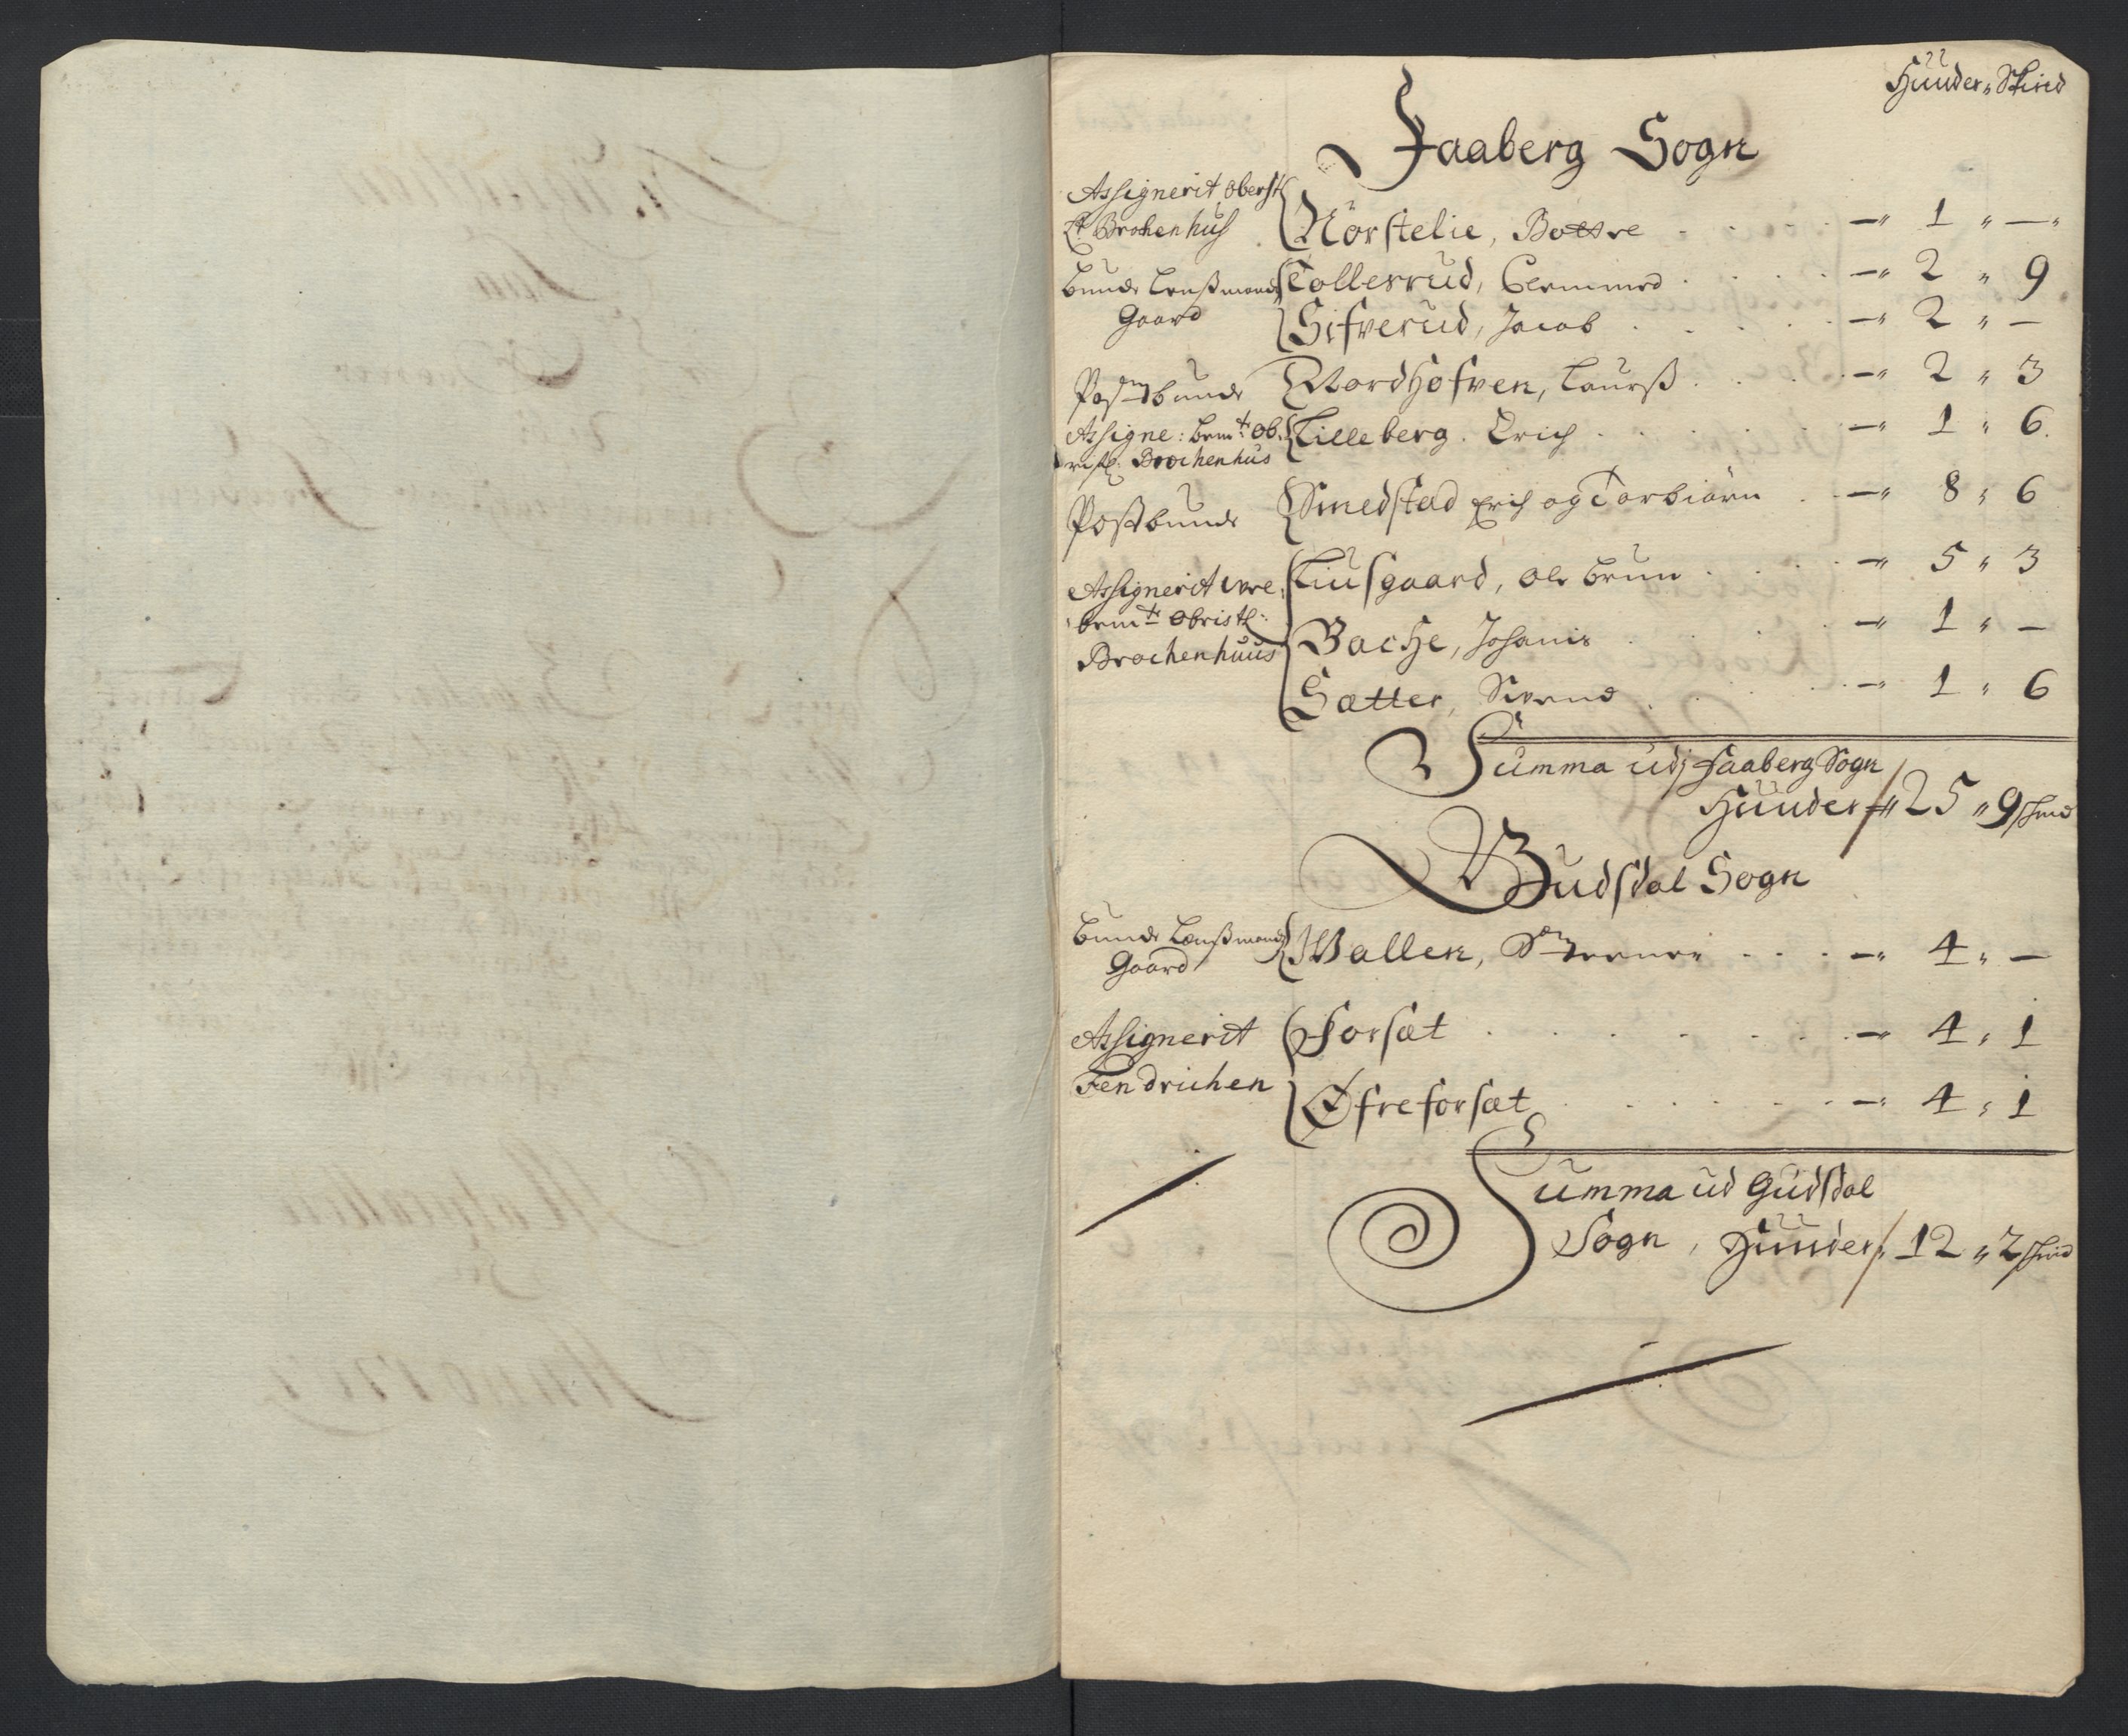 Hüüder " Skind
Faaberg Sogn
Assignerit Oberst
Lt Brokenhus
Norstelie, Bottre — " 1 " — "
Bunde Lensmands
Gaard
Tollerrud, Clemmed — " 2 " 9
Sifverud, Jacob — " 2 " —
Postbunde
Nordhofven, Laurß — " 2 " 3
Assigne: bemt Ob.
ristl: Brochenhus
Lilleberg. Erich — " 1 " 6.
Postbunde
Smedstad Erich og Torbiörn — " 8 " 6
Assignerit
bemt Obristl:
Brochenhuus
Liusgaard, Ole Brun — " 5 " 3
Bache, Johanis — " 1 " —
Sætter, — " 1 " 6
Summa udj Faaberg Sogn
Hüüder — " 25 " 9 skind
Gudsdal Sogn
Bunde Lensmands
Gaard
Wallen, — " 4 " —
Assignerit
Fendrichen
Forsæt — " 4 " 1
Øfreforsæt — " 4 " 1
Summa ud Gudsdal
Sogn, Hüüder " 12 " 2 skind